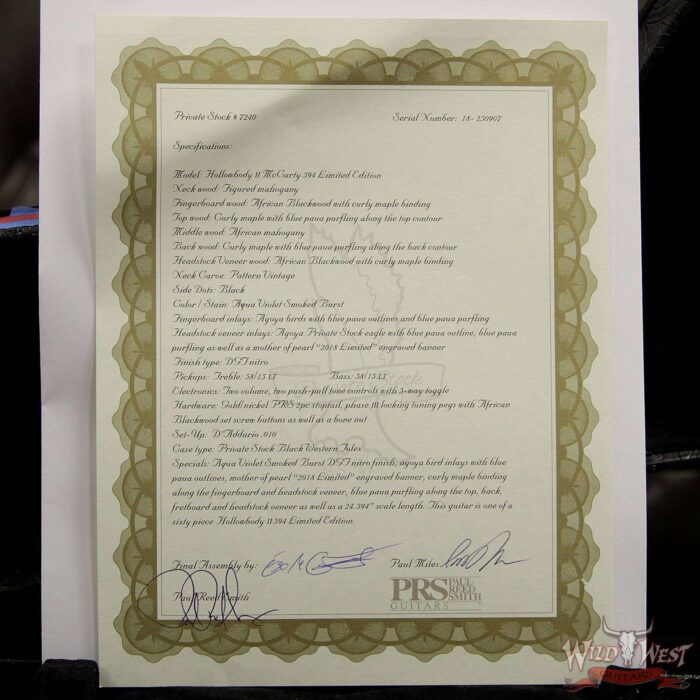 Private Stock # 7240 Serial Number: 18- 250907
Specifications:
Model: Hollowbody II McCarty 594 Limited Edition
Neck wood: Figured mahogany
Fingerboard wood: African Blackwood with curly maple binding
Top wood: Curly maple with blue paua purfling along the top contour
Middle wood: African mahogany
Back wood: Curly maple with blue paua purfling along the back contour
Headstock Veneer wood: African Blackwood with curly maple binding
Neck Carve: Pattern Vintage
Side Dots: Black
Color / Stain: Aqua Violet Smoked Burst
Fingerboard inlays: Agoya birds with blue paua outlines and blue paua purfling
Headstock veneer inlays: Agoya Private Stock eagle with blue paua outline, blue paua
purfling as well as a mother of pearl "2018 Limited" engraved banner
Finish type: DST nitro
Pickups: Treble: 58/15 LT Bass: 58/15 LT
Electronics: Two volume, two push-pull tone controls with 3-way toggle
Hardware: Gold/nickel PRS 2pc stoptail, phase III locking tuning pegs with African
Blackwood set screw buttons as well as a bone nut
Set-Up: D'Addario .010
Case type: Private Stock Black Western Tolex
Specials: Aqua Violet Smoked Burst DST nitro finish, agoya bird inlays with blue
paua outlines, mother of pearl "2018 Limited" engraved banner, curly maple binding
along the fingerboard and headstock veneer, blue paua purfling along the top, back,
fretboard and headstock veneer as well as a 24.594" scale length. This guitar is one of a
sixty piece Hollowbody II 594 Limited Edition.
Final Assembly by: Paul Miles
Paul Reed Smith
PRS PAUL REED SMITH
GUITARS
WILD WEST
GUITARS